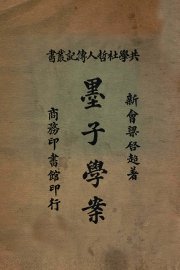 共學社哲人傳記叢書
新會梁啓超著
墨子學案
商務印書館印行